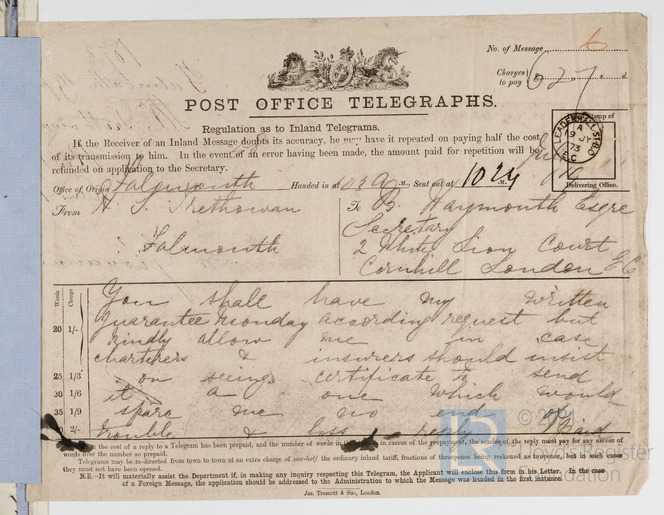 No. of Message 6
Charges to pay £ s. d.
POST OFFICE TELEGRAPHS.
Regulation as to Inland Telegrams.
If the Receiver of an Inland Message doubts its accuracy, he may have it repeated on paying half the cost
of its transmission to him. In the event of an error having been made, the amount paid for repetition will be
refunded on application to the Secretary.
Stamp of
LEADENHALL ST B.O
A
19 JY
73
E C
Delivering Office.
Office of Origin Falmouth Handed in at M., Sent out at 10 24 M.
From H. S. Trethowan
Falmouth
To B. Waymouth Esqre
Secretary
2 White Lion Court
Cornhill London E C
Words Charge
You shall have my written
20 1/- guarantee Monday according request but
kindly allow me in case
charterers & insurers should insist
25 1/3 on seeing certificate to send
30 1/6 it a one which would
35 1/9 spare me no end
40 2/- trouble & loss reply Paid
the cost of a reply to a Telegram has been prepaid, and the number of words in the in excess of the prepayment, the sender of the reply must pay for any excess of
words over the number so prepaid.
Telegrams may be re-directed from town to town at an extra charge of one-half the ordinary inland tariff, fractions of threepence being reckoned as threepence, but in such cases
they must not have been opened.
N.B.—It will materially assist the Department if, in making any inquiry respecting this Telegram, the Applicant will enclose this form in his Letter. In the case
of a Foreign Message, the application should be addressed to the Administration to which the Message was handed in the first instance.
Jas. Truscott & Son, London.
© 2021
Lloyd's Register
Foundation